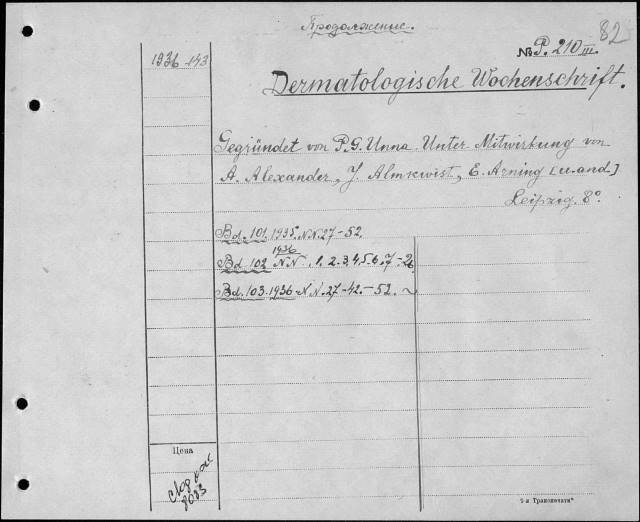 Продолжение.
82
№ P. 210 III.
1936 143
Dermatologische Wochenschrift.
Gegründet von P. G. Unna. Unter Mitwirkung von
A. Alexander, J. Almkwist, E. Arning [u. and.]
Leipzig. 8°.
Bd. 101. 1935. N.N. 27-52.
1936
Bd. 102 N.N. 1. 2. 3. 4. 5. 6. 7-26
Bd. 103. 1936 N.N. 27-42.-52.
Цена
8033
"я. Транспечати"